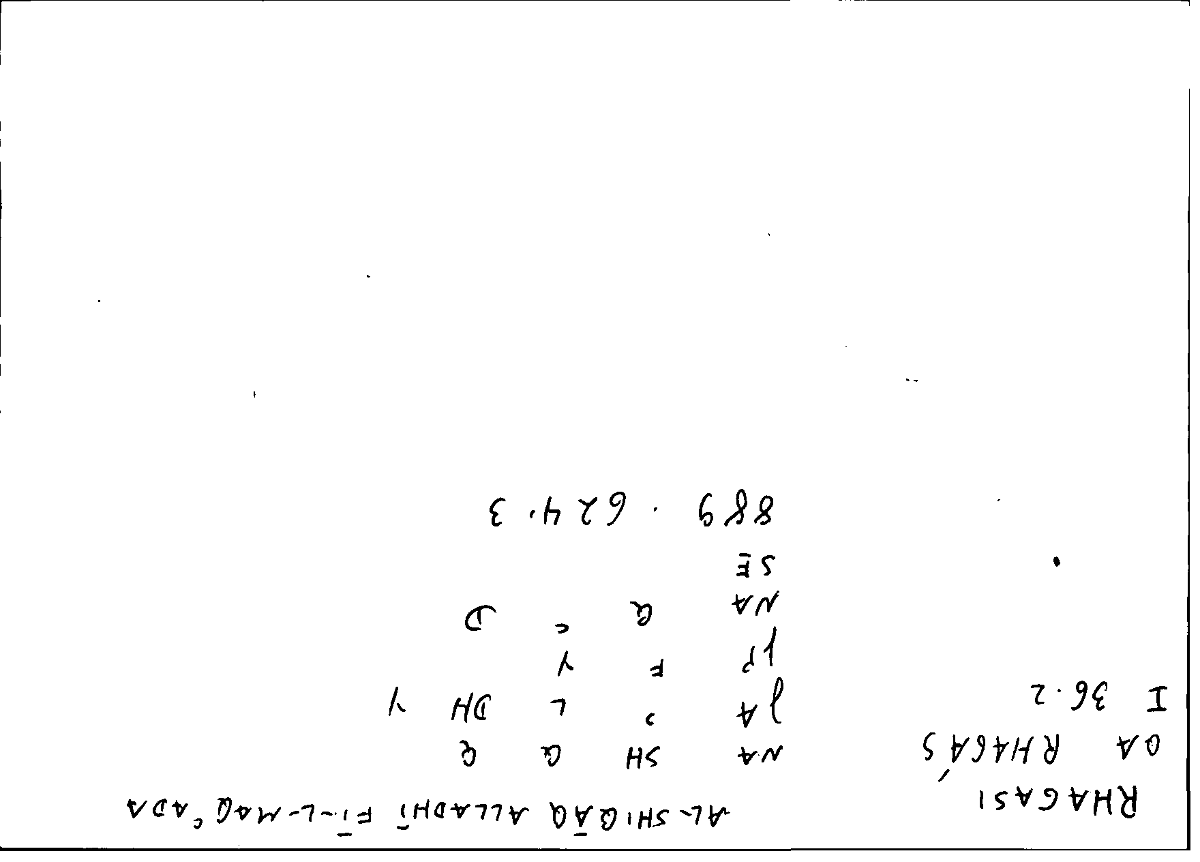 RHAGASI AL-SHIQĀQ ALLADHĪ FĪ-L-MAQʿADA
OA RHAGÁS NA SH Q Q
I 36.2 JA ʾ L DH Y
PP F Y
NA Q ʿ D
SE
889 . 624.3